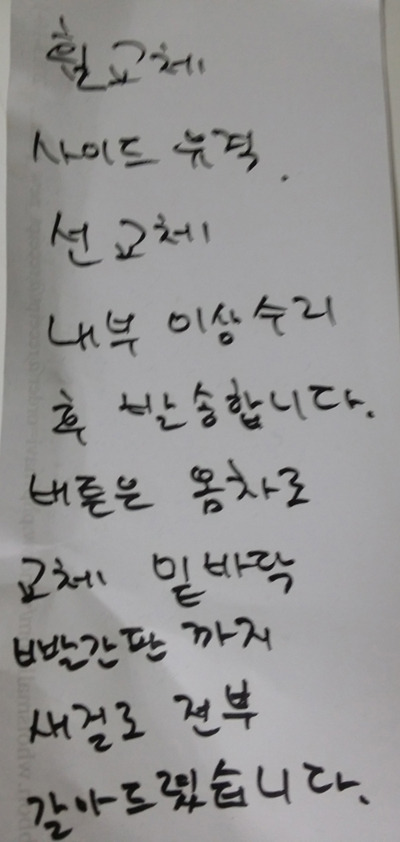 휠교체
사이드 유격.
선교체
내부 이상수리
후 발송합니다.
버튼은 옴차로
교체 밑바닥
빨간판 까지
새걸로 전부
갈아드렸습니다.